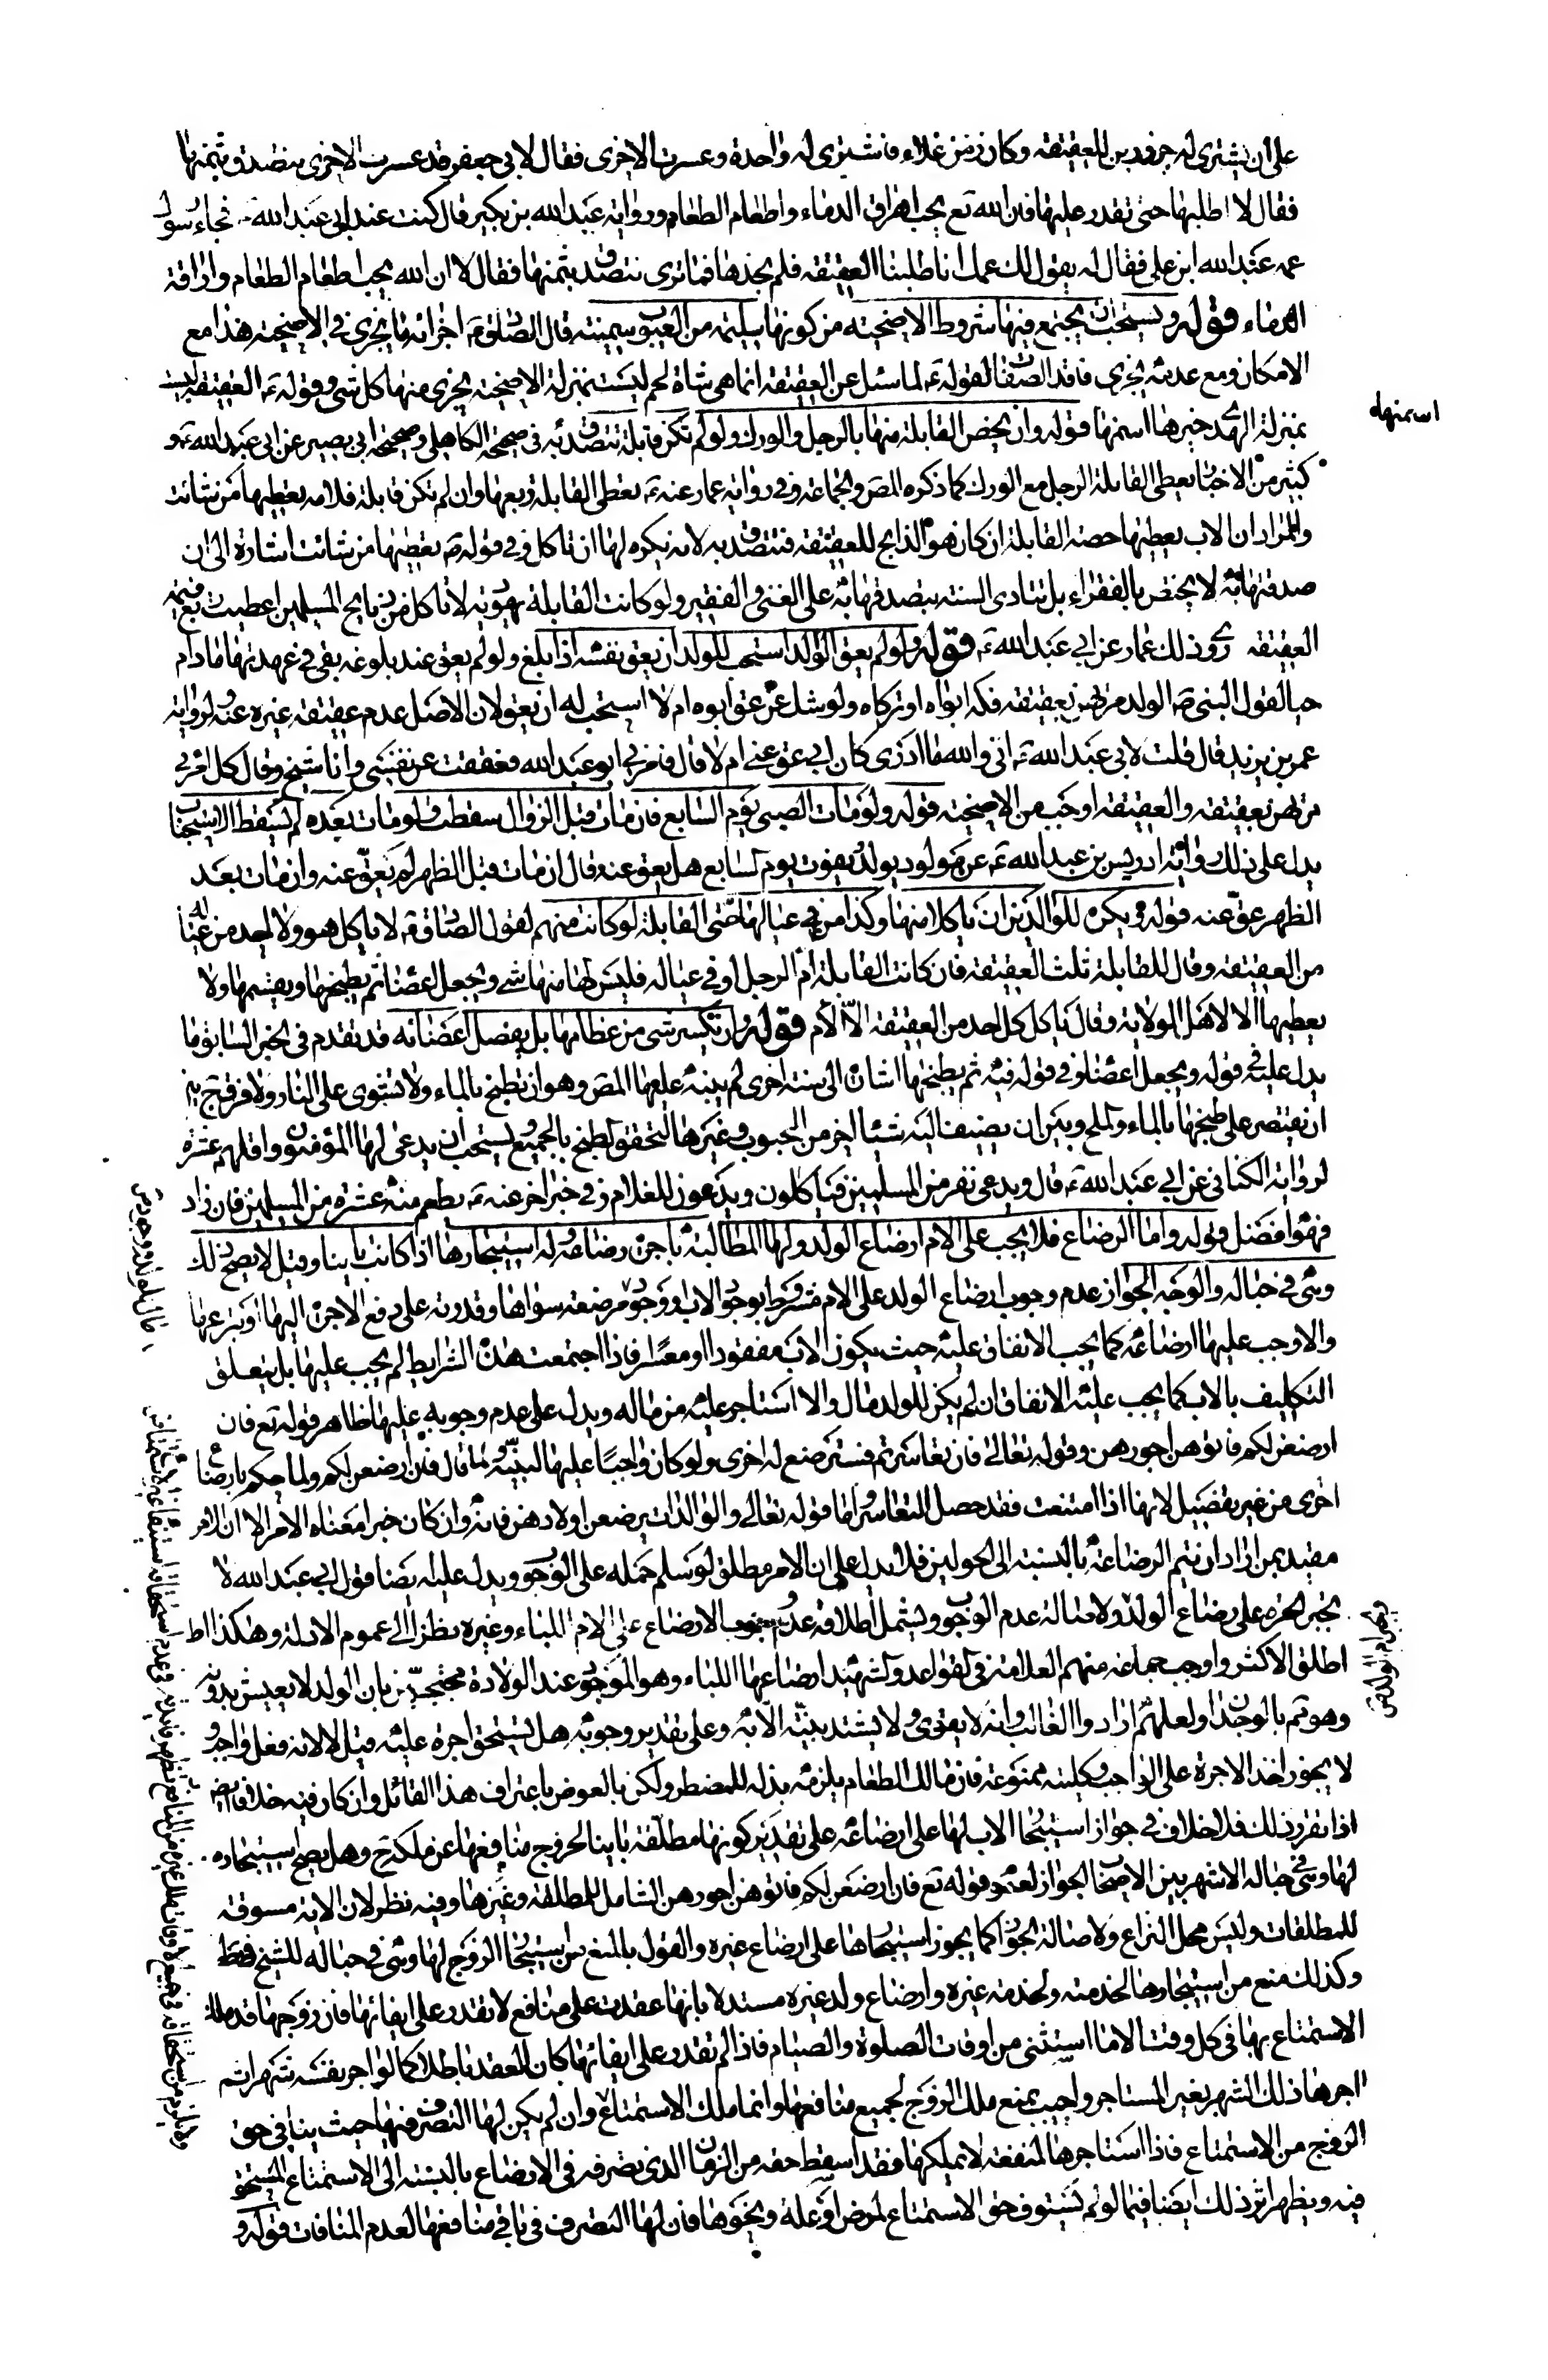 على ان يشترى له جزورين للعقيقه وكان زمن غلاء فاشترى له واحدة وعسرت الاخرى فقال لابى جعفر قد عسرت الاخرى يتصدق بثمنها
فقال لا اطلبها حتى تقدر عليها فان الله تع يحب اهراق الدماء واطعام الطعام ورواية عبد الله بن بكير قال كنت عند ابى عبد الله فجاء رسول
عمه عبد الله ابن على فقال له يقول لك عمك انا طلبنا العقيقه فلم نجدها فما ترى نتصدق بثمنها فقال لا ان الله يحب اطعام الطعام واراقة
الدماء قوله ويستحب ان يجتمع فيها شروط الاضحية من كونها سليمه من العيوب سمينة قال الصادق ع اجزائه ما يجزى في الاضحية هذا مع
الامكان ومع عدمه يجزى فاقد الصفات لقوله ع لما سئل عن العقيقه انما هى شاة لحم ليست بمنزلة الاضحية يجزى منها كل شى وقوله ع العقيقة ليست
بمنزلة الهدى خيرها اسمنها قوله وان يخص القابلة منها بالرجل والورك ولو لم تكن قابلة تتصدق به في صحيحة الكاهلى وصحيحة ابى بصير عن ابى عبد الله ع و
كثير من الاخبار يعطى القابلة الرجل مع الورك كما ذكره المص والجماعة وفي رواية عمار عنه ع يعطى القابلة ربعها وان لم تكن قابلة فلامه يعطيها من شائت
والمراد ان الاب يعطيها حصة القابلة ان كان هو الذابح للعقيقه فتتصدق به لانه يكره لها ان تاكل وفي قوله ع يعطيها من شائت اشارة الى ان
صدقتها به لا يختص بالفقراء بل تتادى السنه بتصدقها به على الغنى والفقير ولو كانت القابلة يهوديه لا تاكل من ذبايح المسلمين اعطيت ربع قيمة
العقيقه روى ذلك عمار عن ابي عبد الله ع قوله ولو لم يعق الوالد استحب للولد ان يعق نفسه اذا بلغ ولو لم يعق عند بلوغه بقى في عهدتها ما دام
حيا لقول النبى ص الولد مرتهن بعقيقته فكه ابواه او تركاه ولو شك عن عق ابوه ام لا استحب له ان يعق لان الاصل عدم عقيقه غيره عنه لرواية
عمر بن يزيد قال قلت لابى عبد الله ع انى والله ما ادرى كان ابي عق عنى ام لا قال فامرني ابو عبد الله فعققت عن نفسى وانا شيخ وقال كل امرئ
مرتهن بعقيقته والعقيقه اوجب من الاضحية قوله ولو مات الصبى يوم السابع فان مات قبل الزوال سقطت ولو مات بعده لم يسقط الاستحباب
يدل على ذلك رواية ادريس بن عبد الله ع عن مولود يولد يموت يوم السابع هل يعق عنه قال ان مات قبل الظهر لم يعق عنه وان مات بعد
الظهر عق عنه قوله ويكره للوالدين ان ياكلا منها وكذا من في عيالهما حتى القابلة لو كانت منهم لقول الصادق ع لا ياكل هو ولا احد من عياله
من العقيقه وقال للقابلة ثلث العقيقه فان كانت القابلة ام الرجل او في عياله فليس لها منها شى ويجعل اعضا ثم يطبخها ويقسمها ولا
يعطيها الا لاهل الولاية وقال ياكل كل احد من العقيقه الا الام قوله وان تكسر شى من عظامها بل يفصل اعضائه قد تقدم في الخبر السابق ما
يدل عليه في قوله ويجعل اعضا وفى قوله فيه ثم يطبخها اشارة الى سنة اخرى لم ينبه عليها المص وهو ان تطبخ بالماء ولا تشوى على النار ولا فرق ح بين
ان نقتصر على طبخها بالماء والملح وبين ان يضيف اليه شيئا اخر من الحبوب وغيرها لتحقق الطبخ بالجميع ويستحب ان يدعى لها المؤمنون واقلهم عشرة
لرواية الكنانى عن ابي عبد الله ع قال ويدعى نفر من المسلمين فياكلون ويدعون للغلام وفي خبر اخر عنه ع يطعم منه عشرة من المسلمين فان زاد
فهو افضل قوله واما الرضاع فلا يجب على الام ارضاع الولد ولها المطالبة باجرة رضاعه وله استيجارها اذا كانت باينا وقيل لا يصح ذلك
وهى في حباله والوجه الجواز عدم وجوب ارضاع الولد على الام مشروط بوجود الاب ووجود مرضعة سواها وقدرته على دفع الاجرة اليها او تبرعها
والا وجب عليها ارضاعه كما يجب الانفاق عليه حيث يكون الاب مفقودا او معسرا فاذا اجتمعت هذه الشرايط لم يجب عليها بل يتعلق
التكليف بالاب كما يجب عليه الانفاق ان لم يكن للولد مال والا استاجر عليه من ماله ويدل على عدم وجوبه عليها ظاهر قوله تع فان
ارضعن لكم فاتوهن اجورهن وقوله تعالى فان تعاسرتم فسترضع له اخرى ولو كان واجبا عليها لنبه لما قال فان ارضعن لكم ولما حكم بارضاع
اخرى من غير تفصيل لانها اذا امتنعت فقد حصل التعاسر واما قوله تعالى والوالدات يرضعن اولادهن فانه وان كان خبرا معناه الامر الا ان الامر
مقيد بمن اراد ان يتم الرضاعة بالنسبة الى الحولين فلا يدل على ان الامر مطلق لو سلم حمله على الوجوب ويدل عليه ايضا قول ابي عبد الله لا
يجبر الحرة على رضاع الولد ولاصالة عدم الوجوب ويشمل اطلاقه عدم وجوب الارضاع على الام اللباء وغيره نظرا الى عموم الادلة وهكذا اط
اطلق الاكثر واوجب جماعة منهم العلامة في القواعد والشهيد ارضاعها اللباء وهو الموجود عند الولادة محتجين بان الولد لا يعيش بدونه
وهو تم بالوجدان ولعلهم ارادوا الغالب وانه لا يقوى ولا يشتد بنيته الا به وعلى تقدير وجوبه هل يستحق اجرة عليه قيل لا لانه فعل واجب
لا يجوز اخذ الاجرة على الواجب وكليته ممنوعة فان مالك الطعام يلزمه بذله للمضطر ولكن بالعوض باعتراف هذا القائل وان كان فيه خلاف ايض
اذا تقرر ذلك فلا خلاف في جواز استيجار الاب لها على ارضاعه على تقدير كونها مطلقة باينا لخروج منافعها عن ملكه ح وهل يصح استيجاره
لها وهى في حباله الاشهر بين الاصحاب الجواز لعموم قوله تع فان ارضعن لكم فاتوهن اجورهن الشامل للمطلقة وغيرها وفيه نظر لان الاية مسوقة
للمطلقات وليس محل النزاع ولاصالة الجواز كما يجوز استيجارها على ارضاع غيره والقول بالمنع من استيجار الزوج لها وهى في حباله للشيخ في ط
وكذلك منع من استيجارها لخدمته ولخدمة غيره وارضاع ولد غيره مستدلا بانها عقدت على منافع لا تقدر على ايفائها فان زوجها قد ملك
الاستمتاع بها في كل وقت الا ما استثنى من اوقات الصلوة والصيام فاذا لم تقدر على ايفائها كان العقد باطلا كما لو اجر نفسه شهرا ثم
اجرها ذلك الشهر بغير المستاجر واجيب بمنع ملك الزوج لجميع منافعها وانما ملك الاستمتاع وان لم يكن لها التصرف فيها حيث ينافي حق
الزوج من الاستمتاع فاذا استاجرها لمنفعة لا يملكها فقد اسقط حقه من الزمان الذى تصرفه في الارضاع بالنسبة الى الاستمتاع المستحق
فيه ويظهر اثر ذلك ايضا فيما لو لم تستوف حق الاستمتاع لمرض او علة ونحوها فان لها التصرف في باقي منافعها لعدم المنافات قوله و
اسمنها
مال للولد ووجود